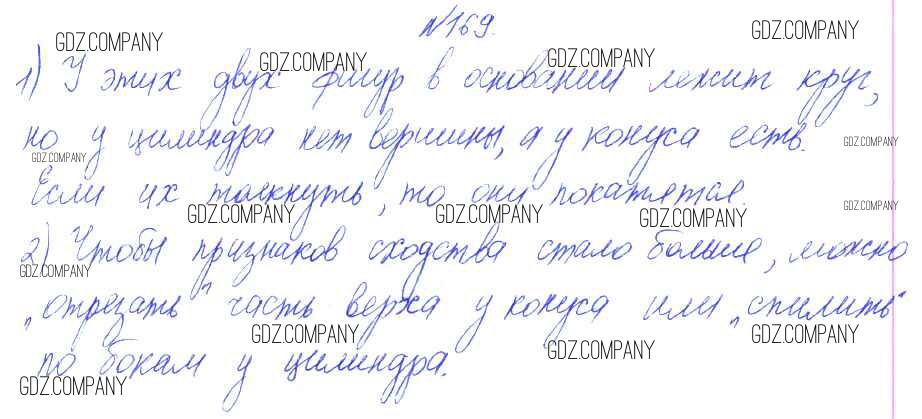 №169.
GDZ.COMPANY GDZ.COMPANY GDZ.COMPANY GDZ.COMPANY
1) У этих двух фигур в основании лежит круг,
но у цилиндра нет вершины, а у конуса есть.
GDZ.COMPANY GDZ.COMPANY
Если их толкнуть, то они покатятся.
GDZ.COMPANY GDZ.COMPANY GDZ.COMPANY GDZ.COMPANY
2) Чтобы признаков сходства стало больше, можно
GDZ.COMPANY
„отрезать" часть верха у конуса или „спилить"
GDZ.COMPANY GDZ.COMPANY GDZ.COMPANY
по бокам у цилиндра.
GDZ.COMPANY